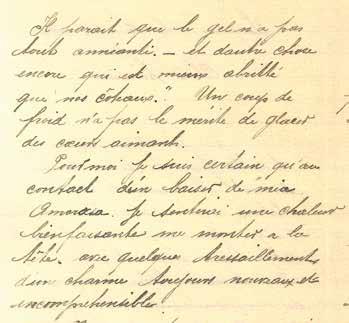 Il parait que le gel n'a pas
tout anéanti. - et d'autre chose
encore qui est moins abritté
que nos côteaux." Un coup de
froid n'a pas le merite de glacer
des cœurs aimants.
Pour moi je suis certain qu'au
contact d'un baiser de "mia
Amorosa je sentirai une chaleur
bienfaisante me monter a la
tête. avec quelques tressaillements
d'un charme toujours nouveau et
incomprehensible.